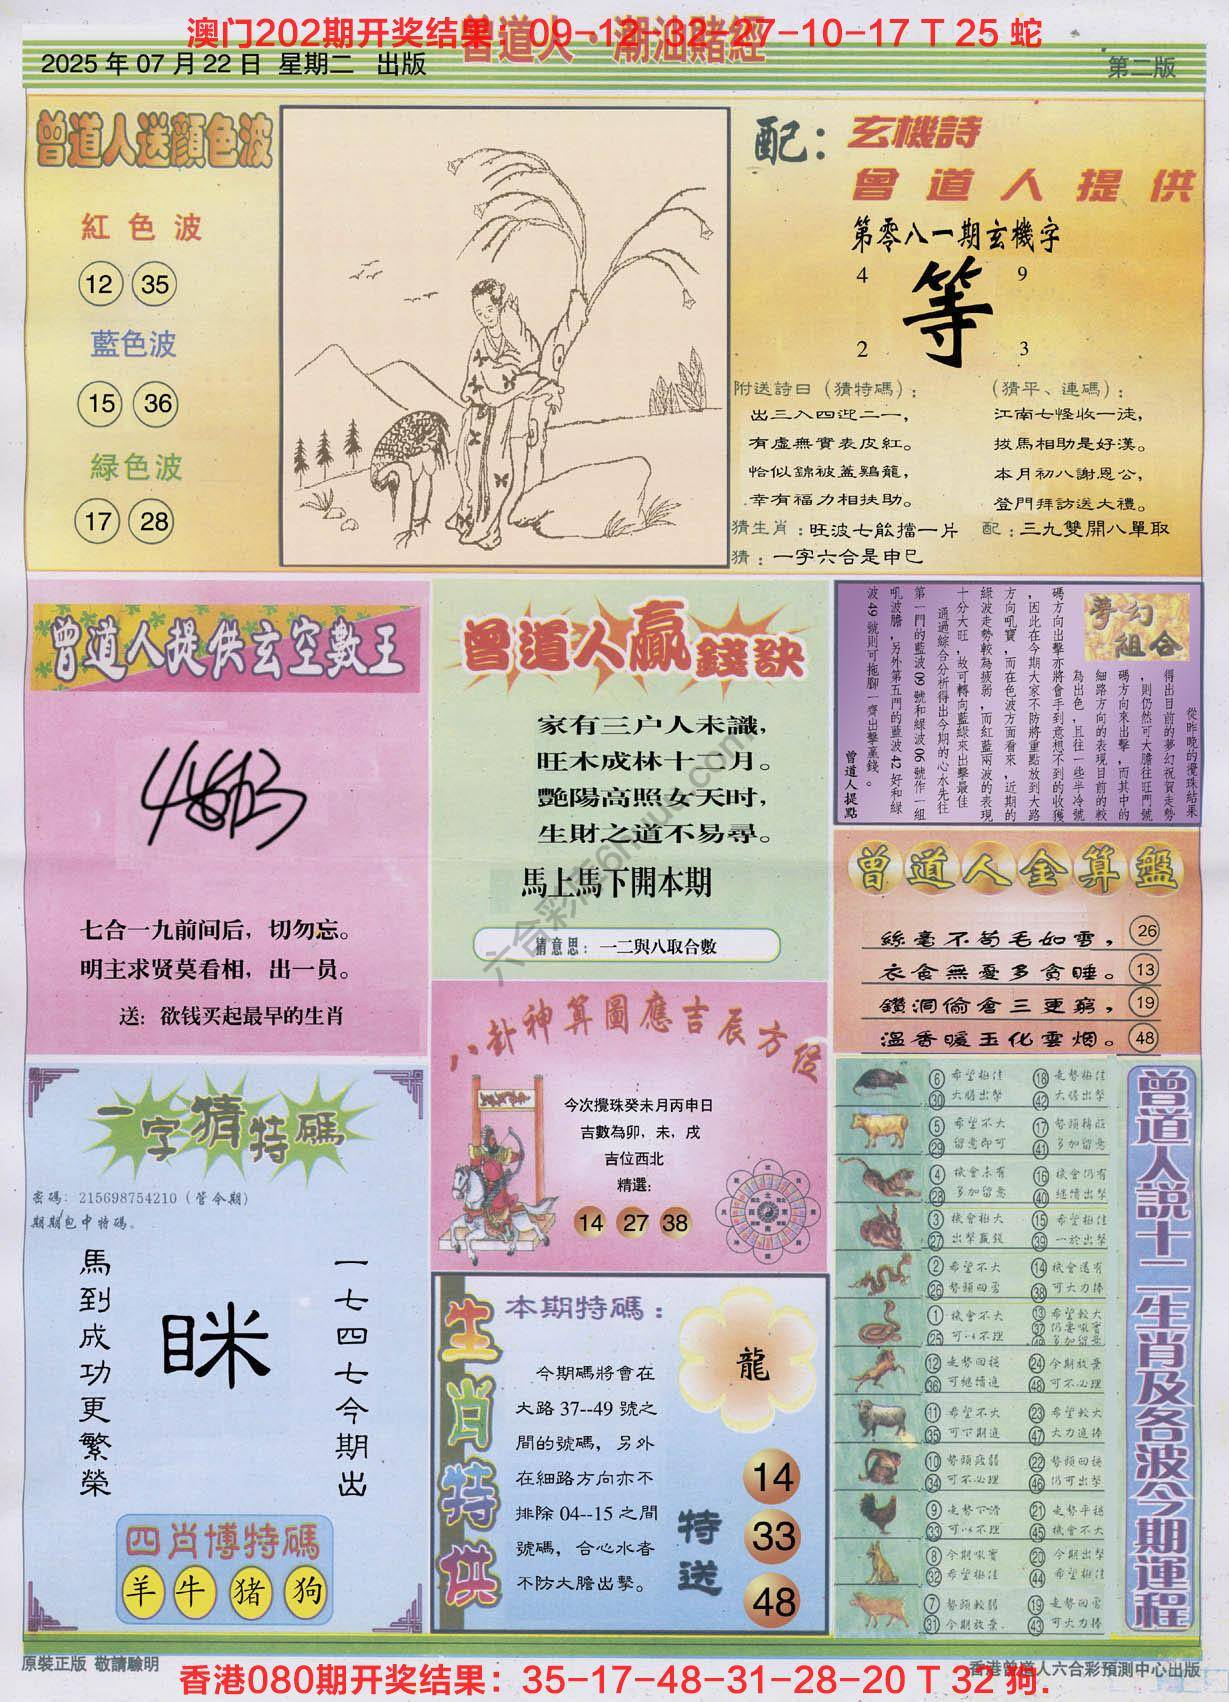 澳门202期开奖结果：09-12-32-27-10-17 T 25 蛇
曾道人·潮油賭經
2025 年 07 月 22 日  星期二  出版
第二版
曾道人送顏色波
紅色波
12 35
藍色波
15 36
緑色波
17 28
配：玄機詩
曾道人提供
第零八一期玄機字
4 9
等
2 3
附送詩曰（猜特碼）：
出三入四迎二一，
有虛無實表皮紅。
恰似錦被蓋鷄龍，
幸有福力相扶助。
（猜平、連碼）：
江南七怪收一徒，
拔馬相助是好漢。
本月初八謝恩公，
登門拜訪送大禮。
猜生肖：旺波七能擋一片
配：三九雙開八單取
猜：一字六合是申巳
曾道人提供玄空數王
七合一九前间后，切勿忘。
明主求贤莫看相，出一员。
送：欲钱买起最早的生肖
曾道人贏錢訣
家有三户人未識，
旺木成林十二月。
艷陽高照女天时，
生財之道不易尋。
馬上馬下開本期
猜意思：一二與八取合數
夢幻組合
從昨晚的攪珠結果
得出目前的夢幻祝賀走勢
，則仍然可大膽往旺門號
碼方向來出擊，而其中的
細路方向的表現目前的較
為出色，且往一些半冷號
碼方向出擊亦將會手到意想不到的收獲
，因此在今期大家不防將重點放到大路
方向吼寶，而在色波方面看來，近期的
綠波走勢較為疲弱，而紅藍兩波的表現
十分大旺，故可轉向藍綠來出擊最佳
通過綜合分析得出今期的心水先往
第一門的藍波09號和綠波06號作一組
吼波膽，另外第五門的藍波42好和綠
波49號則可拖腳一齊出擊贏錢。
曾道人提點
曾道人金算盤
絲毫不苟毛如雪， 26
衣食無憂多貪睡。 13
鑽洞偷倉三更窮， 19
溫香暖玉化雲烟。 48
八卦神算圖應吉辰方位
今次攪珠癸未月丙申日
吉數為卯，未，戌
吉位西北
精選：
14 27 38
一字猜特碼
密碼：215698754210（管今期）
期期包中特碼。
馬到成功更繁榮
眯
一七四七今期出
四肖博特碼
羊 牛 猪 狗
生肖特供
本期特碼：
今期碼將會在
大路 37--49 號之
間的號碼，另外
在細路方向亦不
排除 04--15 之間
號碼，合心水者
不防大膽出擊。
龍
特送
14
33
48
曾道人説十二生肖及各波今期運程
6 希望極佳 18 走勢極佳
30 大膽出擊 42 大膽出擊
5 希望不大 17 勢頭轉旺
29 留意即可 41 多加留意
4 機會未有 16 機會仍有
28 多加留意 40 繼續出擊
3 機會極大 15 希望極佳
27 出擊贏錢 39 一於出擊
2 希望不大 14 機會還有
26 勢頭回勇 38 可大力捧
1 機會不大 13 希望較大
25 可以不理 37 仍要吼實
49 多加留意
12 走勢回穩 24 今期放棄
36 可繼續追 48 可不必理
11 希望不大 23 希望較大
35 可下期追 47 大力追捧
10 勢頭疲弱 22 勢頭回穩
34 可不必理 46 仍可出擊
9 走勢下滑 21 走勢平穩
33 可以不理 45 機會不大
8 今期吼實 20 今期出擊
32 希望極佳 44 希望極佳
7 勢頭較弱 19 走勢回勇
31 今期放棄 43 可大力捧
原裝正版 敬請驗明
香港曾道人六合彩預測中心出版
香港080期开奖结果：35-17-48-31-28-20 T 32 狗.